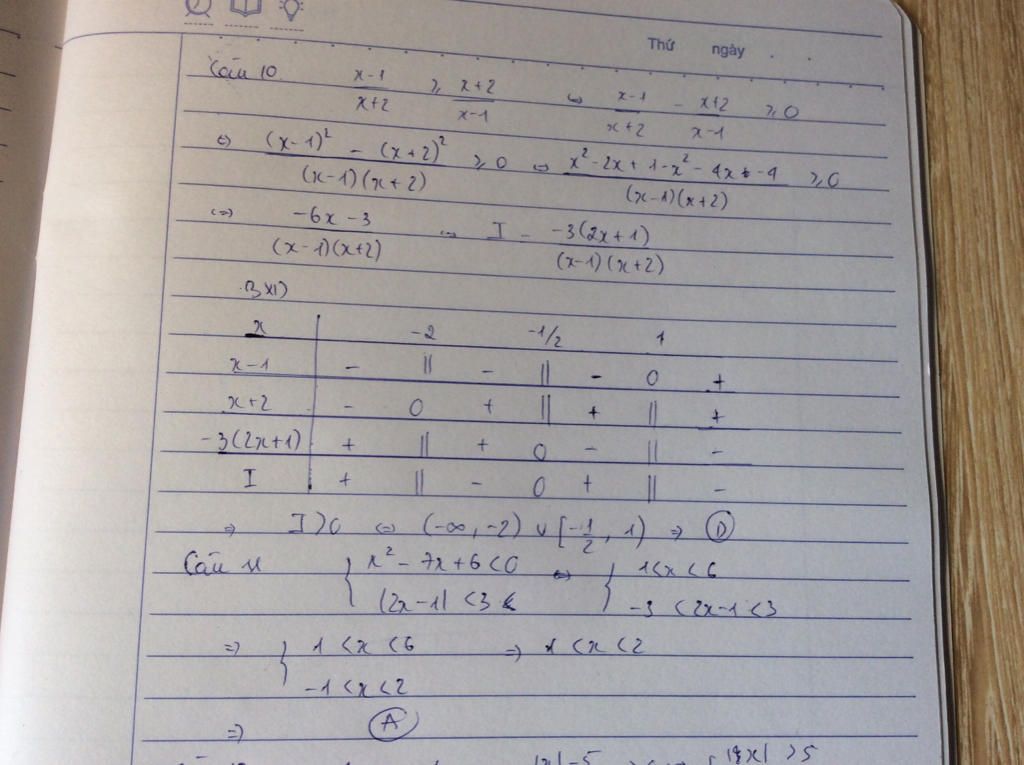 Thứ ngày . .
Câu 10. x-1/x+2 ≥ x+2/x-1 ⇔ x-1/x+2 - x+2/x-1 ≥ 0
⇔ (x-1)² - (x+2)²/(x-1)(x+2) ≥ 0 ⇔ x² - 2x + 1 - x² - 4x - 4/(x-1)(x+2) ≥ 0
⇔ -6x - 3/(x-1)(x+2) ⇔ I = -3(2x+1)/(x-1)(x+2)
BXD
x -2 -1/2 1
x-1 - || - || - 0 +
x+2 - 0 + || + || +
-3(2x+1) + || + 0 - || -
I + || - 0 + || -
⇒ I ≥ 0 ⇔ (-∞, -2) ∪ [-1/2, 1) ⇒ D
Câu 11 { x² - 7x + 6 < 0 ⇔ { 1 < x < 6
|2x-1| < 3 -3 < 2x-1 < 3
⇒ { 1 < x < 6 ⇒ 1 < x < 2
-1 < x < 2
⇒ A